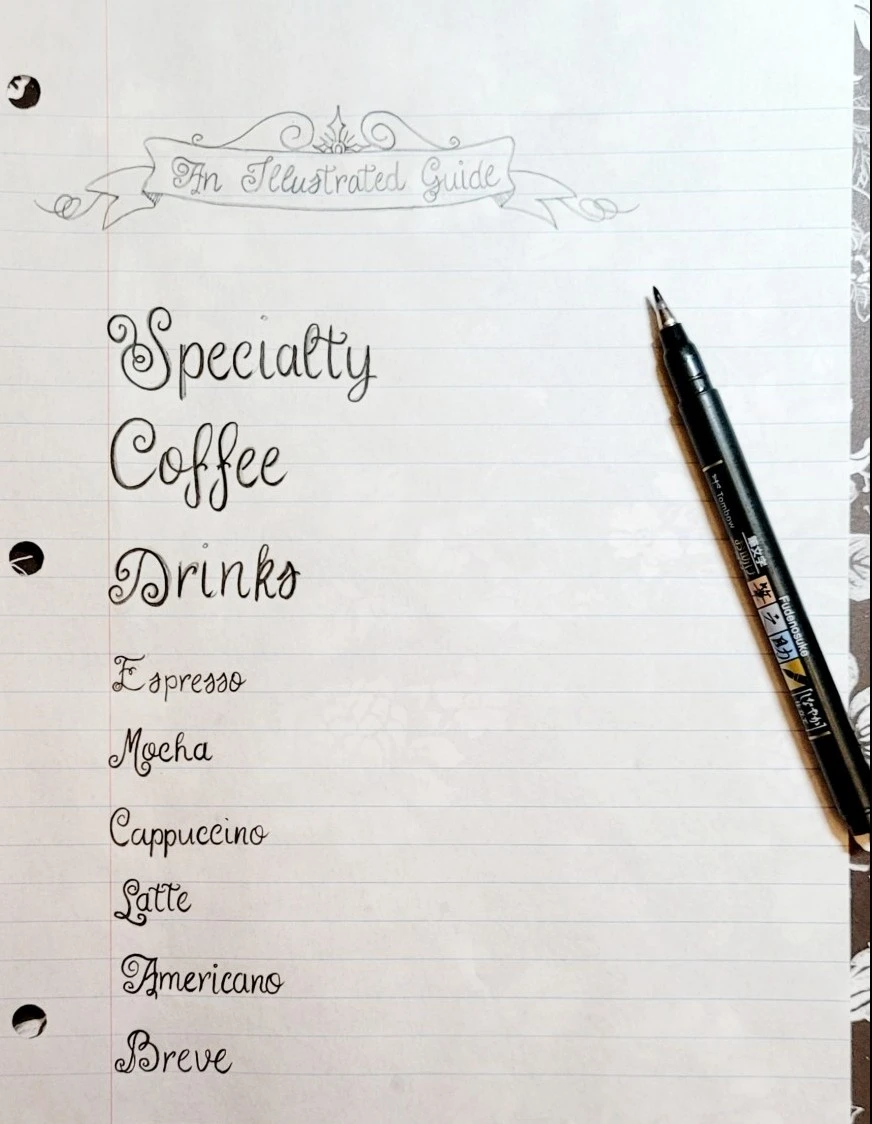 An Illustrated Guide
Specialty
Coffee
Drinks
Espresso
Mocha
Cappuccino
Latte
Americano
Breve
Tombow
Fudenosuke